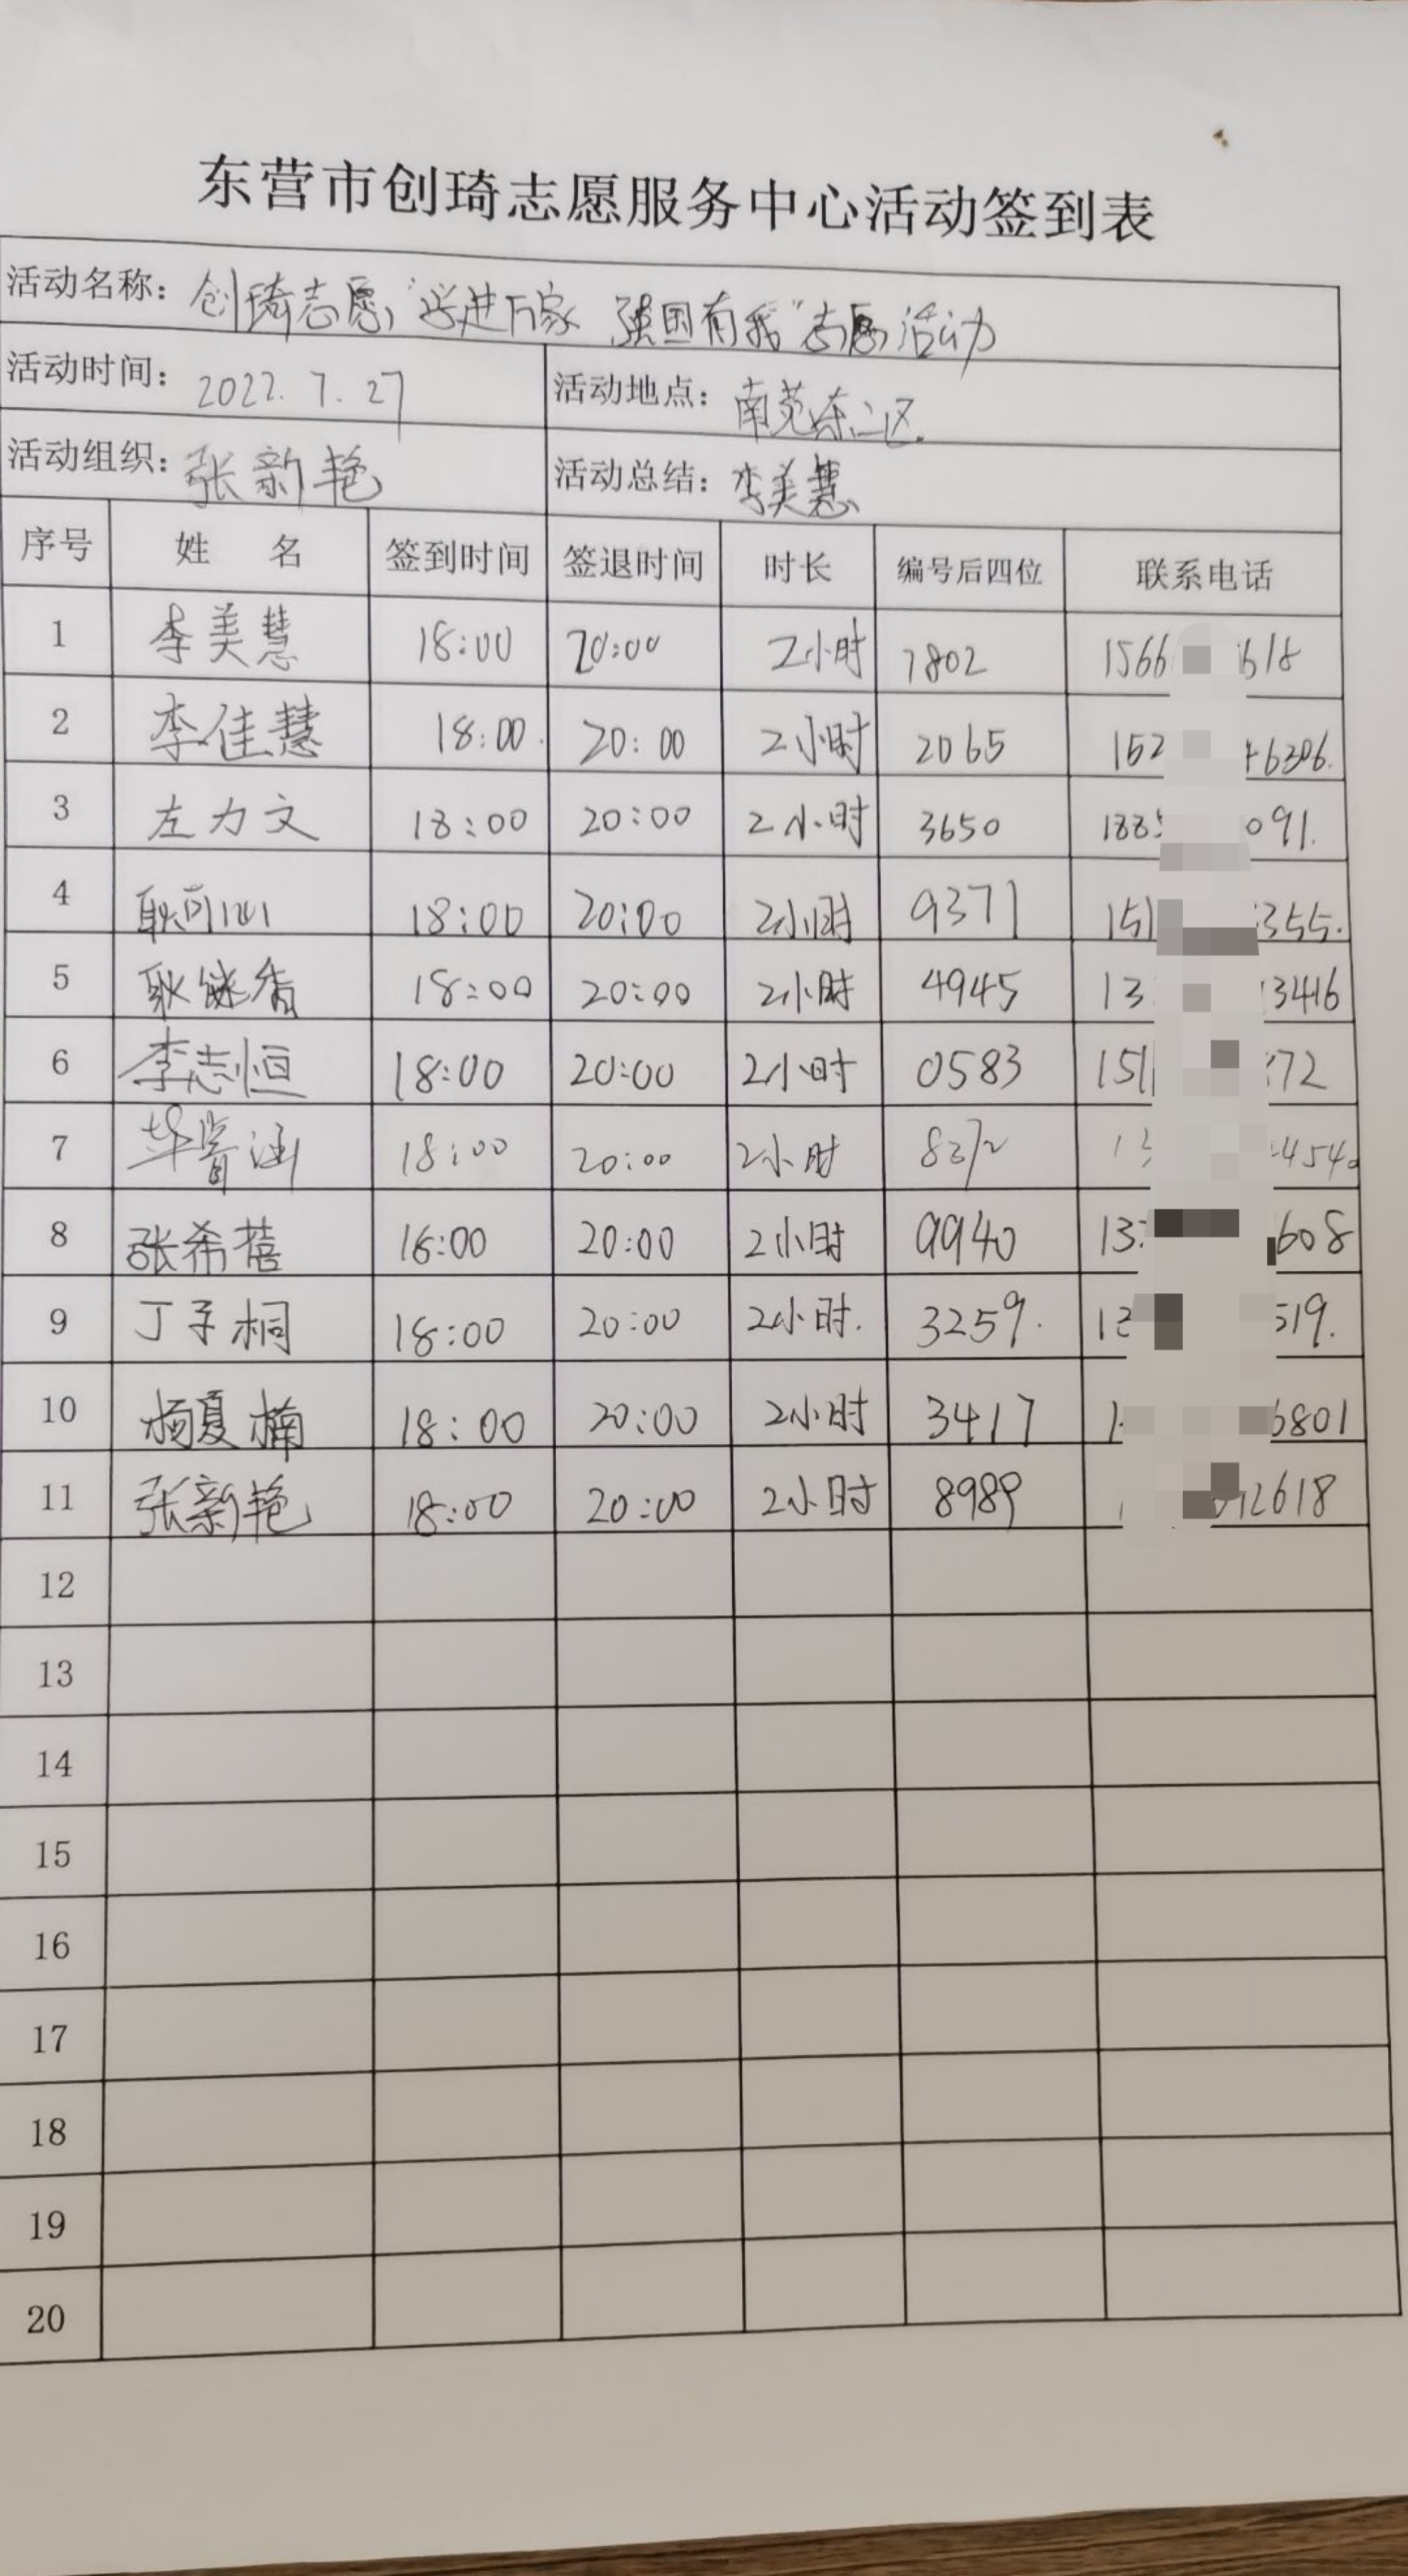 东营市创琦志愿服务中心活动签到表
活动名称：创琦志愿"学进万家 强国有我"志愿活动
活动时间：2022.7.27 活动地点：南苑东二区
活动组织：张新艳 活动总结：李美慧
序号 姓名 签到时间 签退时间 时长 编号后四位 联系电话
1 李美慧 18:00 20:00 2小时 7802 1566 618
2 李佳慧 18:00 20:00 2小时 2065 152 6306.
3 左力文 18:00 20:00 2小时 3650 188 091.
4 耿可 18:00 20:00 2小时 9371 151 355.
5 耿 18:00 20:00 2小时 4945 13 3416
6 李志恒 18:00 20:00 2小时 0583 151 72
7 涵 18:00 20:00 2小时 8372 13 454
8 张希蓓 16:00 20:00 2小时 9940 13 608
9 丁子桐 18:00 20:00 2小时. 3259. 13 519.
10 杨夏楠 18:00 20:00 2小时 3417 1 6801
11 张新艳 18:00 20:00 2小时 8989 12618
12
13
14
15
16
17
18
19
20